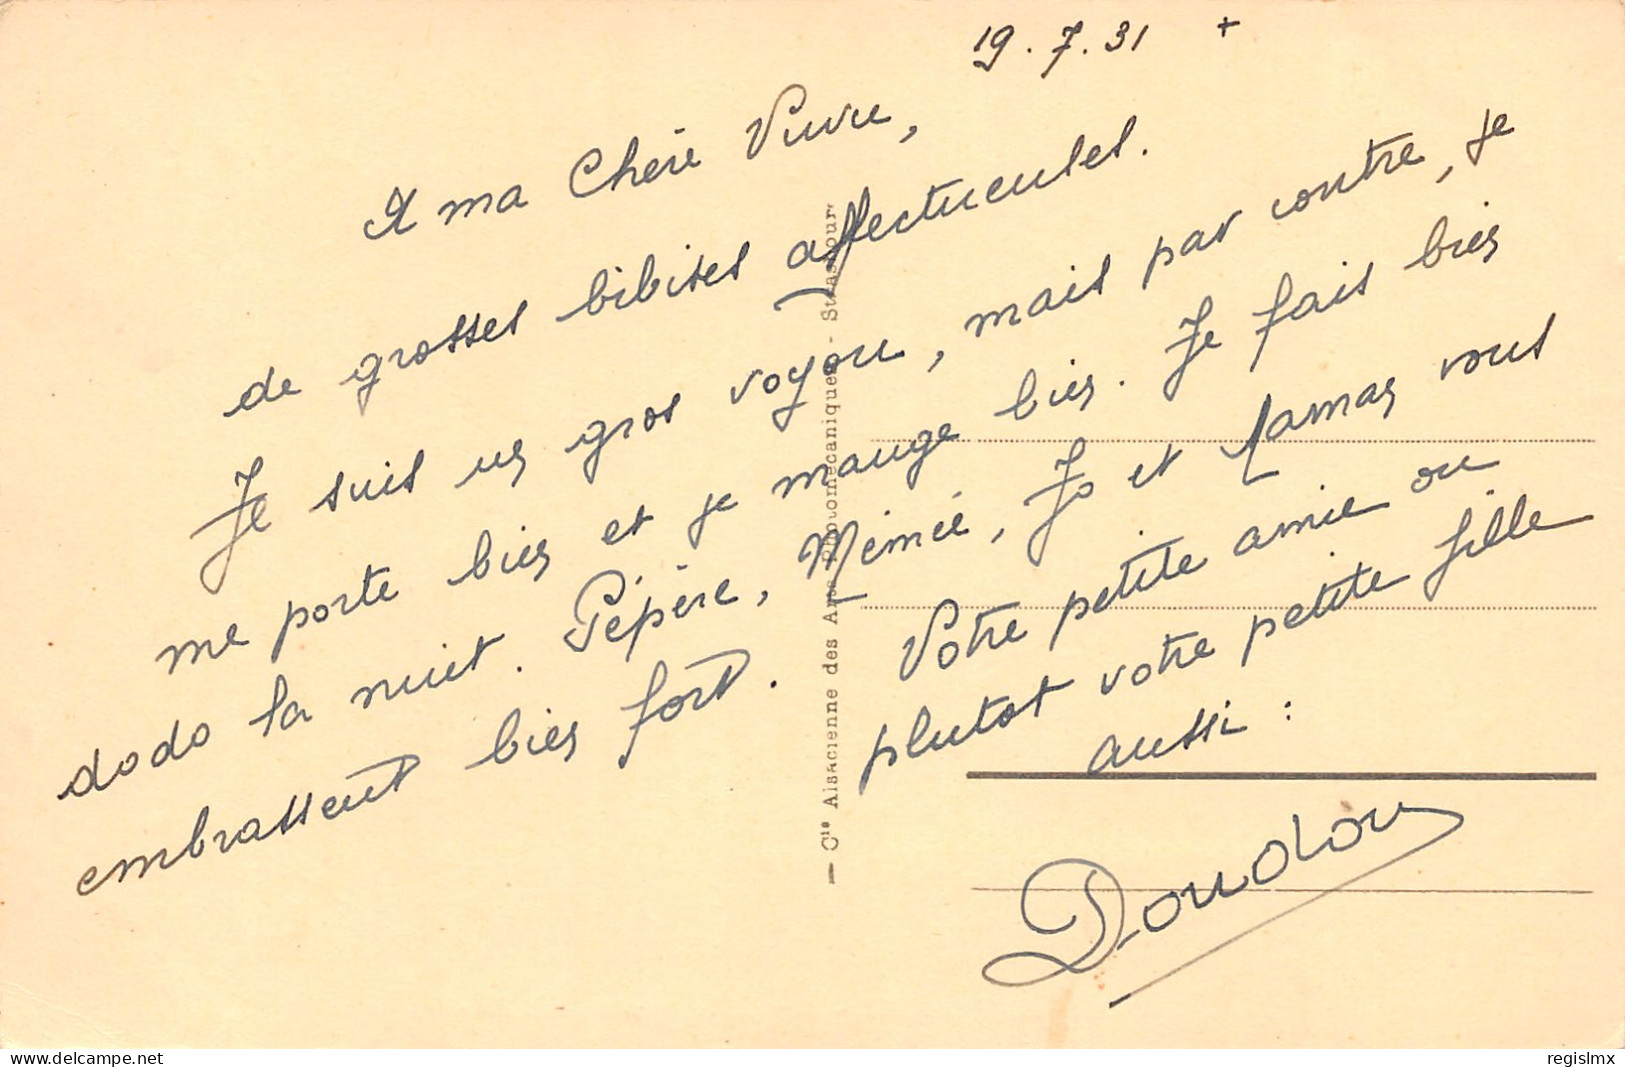 19.7.31 +
A ma Chère Vivie,
de grosses bibises affectueuses.
Je suis un gros voyou, mais par contre, je
me porte bien et je mange bien. Je fais bien
dodo la nuit. Pépère, Mémée, Jo et Maman vous
embrassent bien fort. Votre petite amie ou
plutot votre petite fille
aussi :
Doudou
— Cie Alsacienne des Arts Photomécaniques - Strasbourg
delcampe.net
regislmx